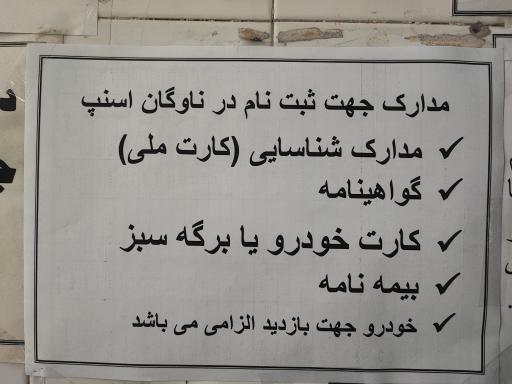 مدارک جهت ثبت نام در ناوگان اسنپ
✓ مدارک شناسایی (کارت ملی)
✓ گواهینامه
✓ کارت خودرو یا برگه سبز
✓ بیمه نامه
✓ خودرو جهت بازدید الزامی می باشد